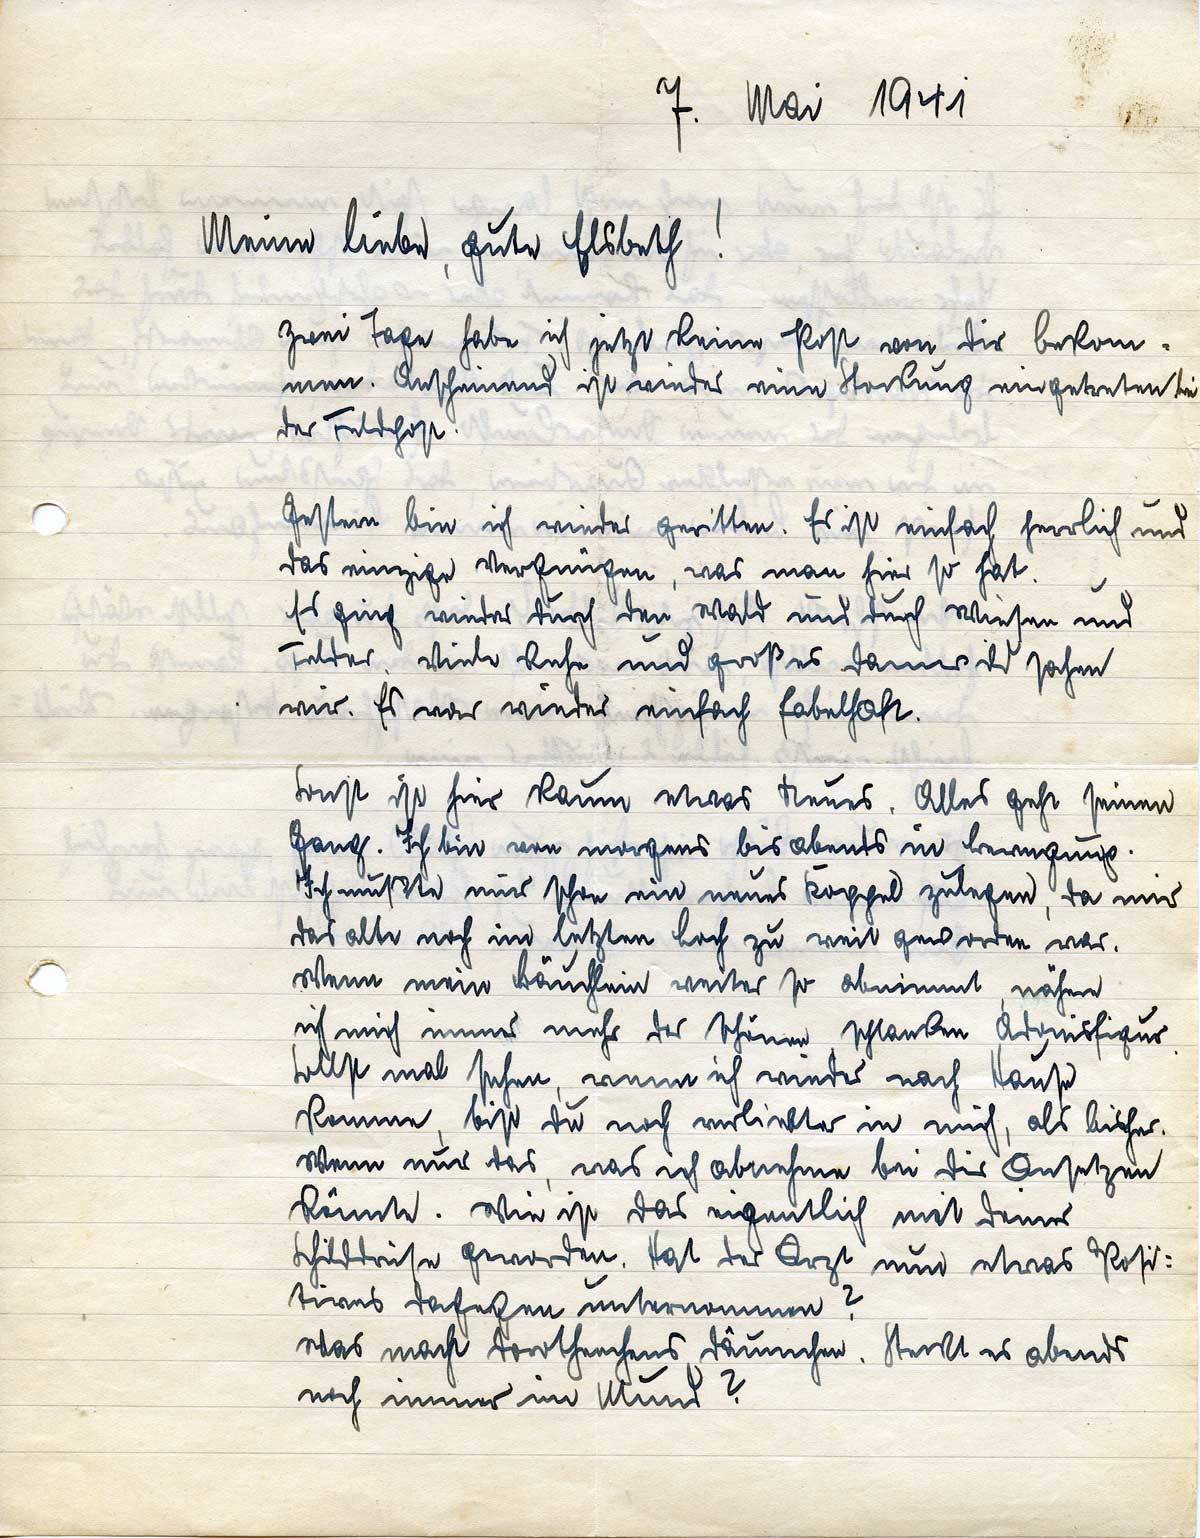 7. Mai 1941
Meine liebe, gute Elsbeth!
Zwei Tage habe ich jetzt keine Post von Dir bekom-
men. Anscheinend ist wieder eine Stockung eingetreten bei
der Feldpost.
Gestern bin ich wieder geritten. Es ist einfach herrlich und
das einzige Vergnügen, was man hier so hat.
Es ging wieder durch den Wald und durch Wiesen und
Felder. Viele Rehe und großes Damwild sahen
wir. Es war wieder einfach fabelhaft.
Sonst ist hier kaum etwas Neues. Alles geht seinen
Gang. Ich bin von morgens bis abends in Bewegung.
Ich mußte mir schon ein neues Koppel zulegen, da mir
das alte noch im letzten Loch zu weit geworden war.
Wenn mein Bäuchlein weiter so abnimmt, nähere
ich mich immer mehr der schönen, schlanken Adonisfigur.
Sollst mal sehen, wenn ich wieder nach Hause
komme, bist Du noch verliebter in mich, als bisher.
Wenn nur das, was ich abnehme bei Dir ansetzen
könnte. Wie ist das eigentlich mit Deiner
Schilddrüse geworden. Hat der Arzt nun etwas Posi-
tives dagegen unternommen?
Was macht Dorotheechens Däumchen. Steckt es abends
noch immer im Mund?